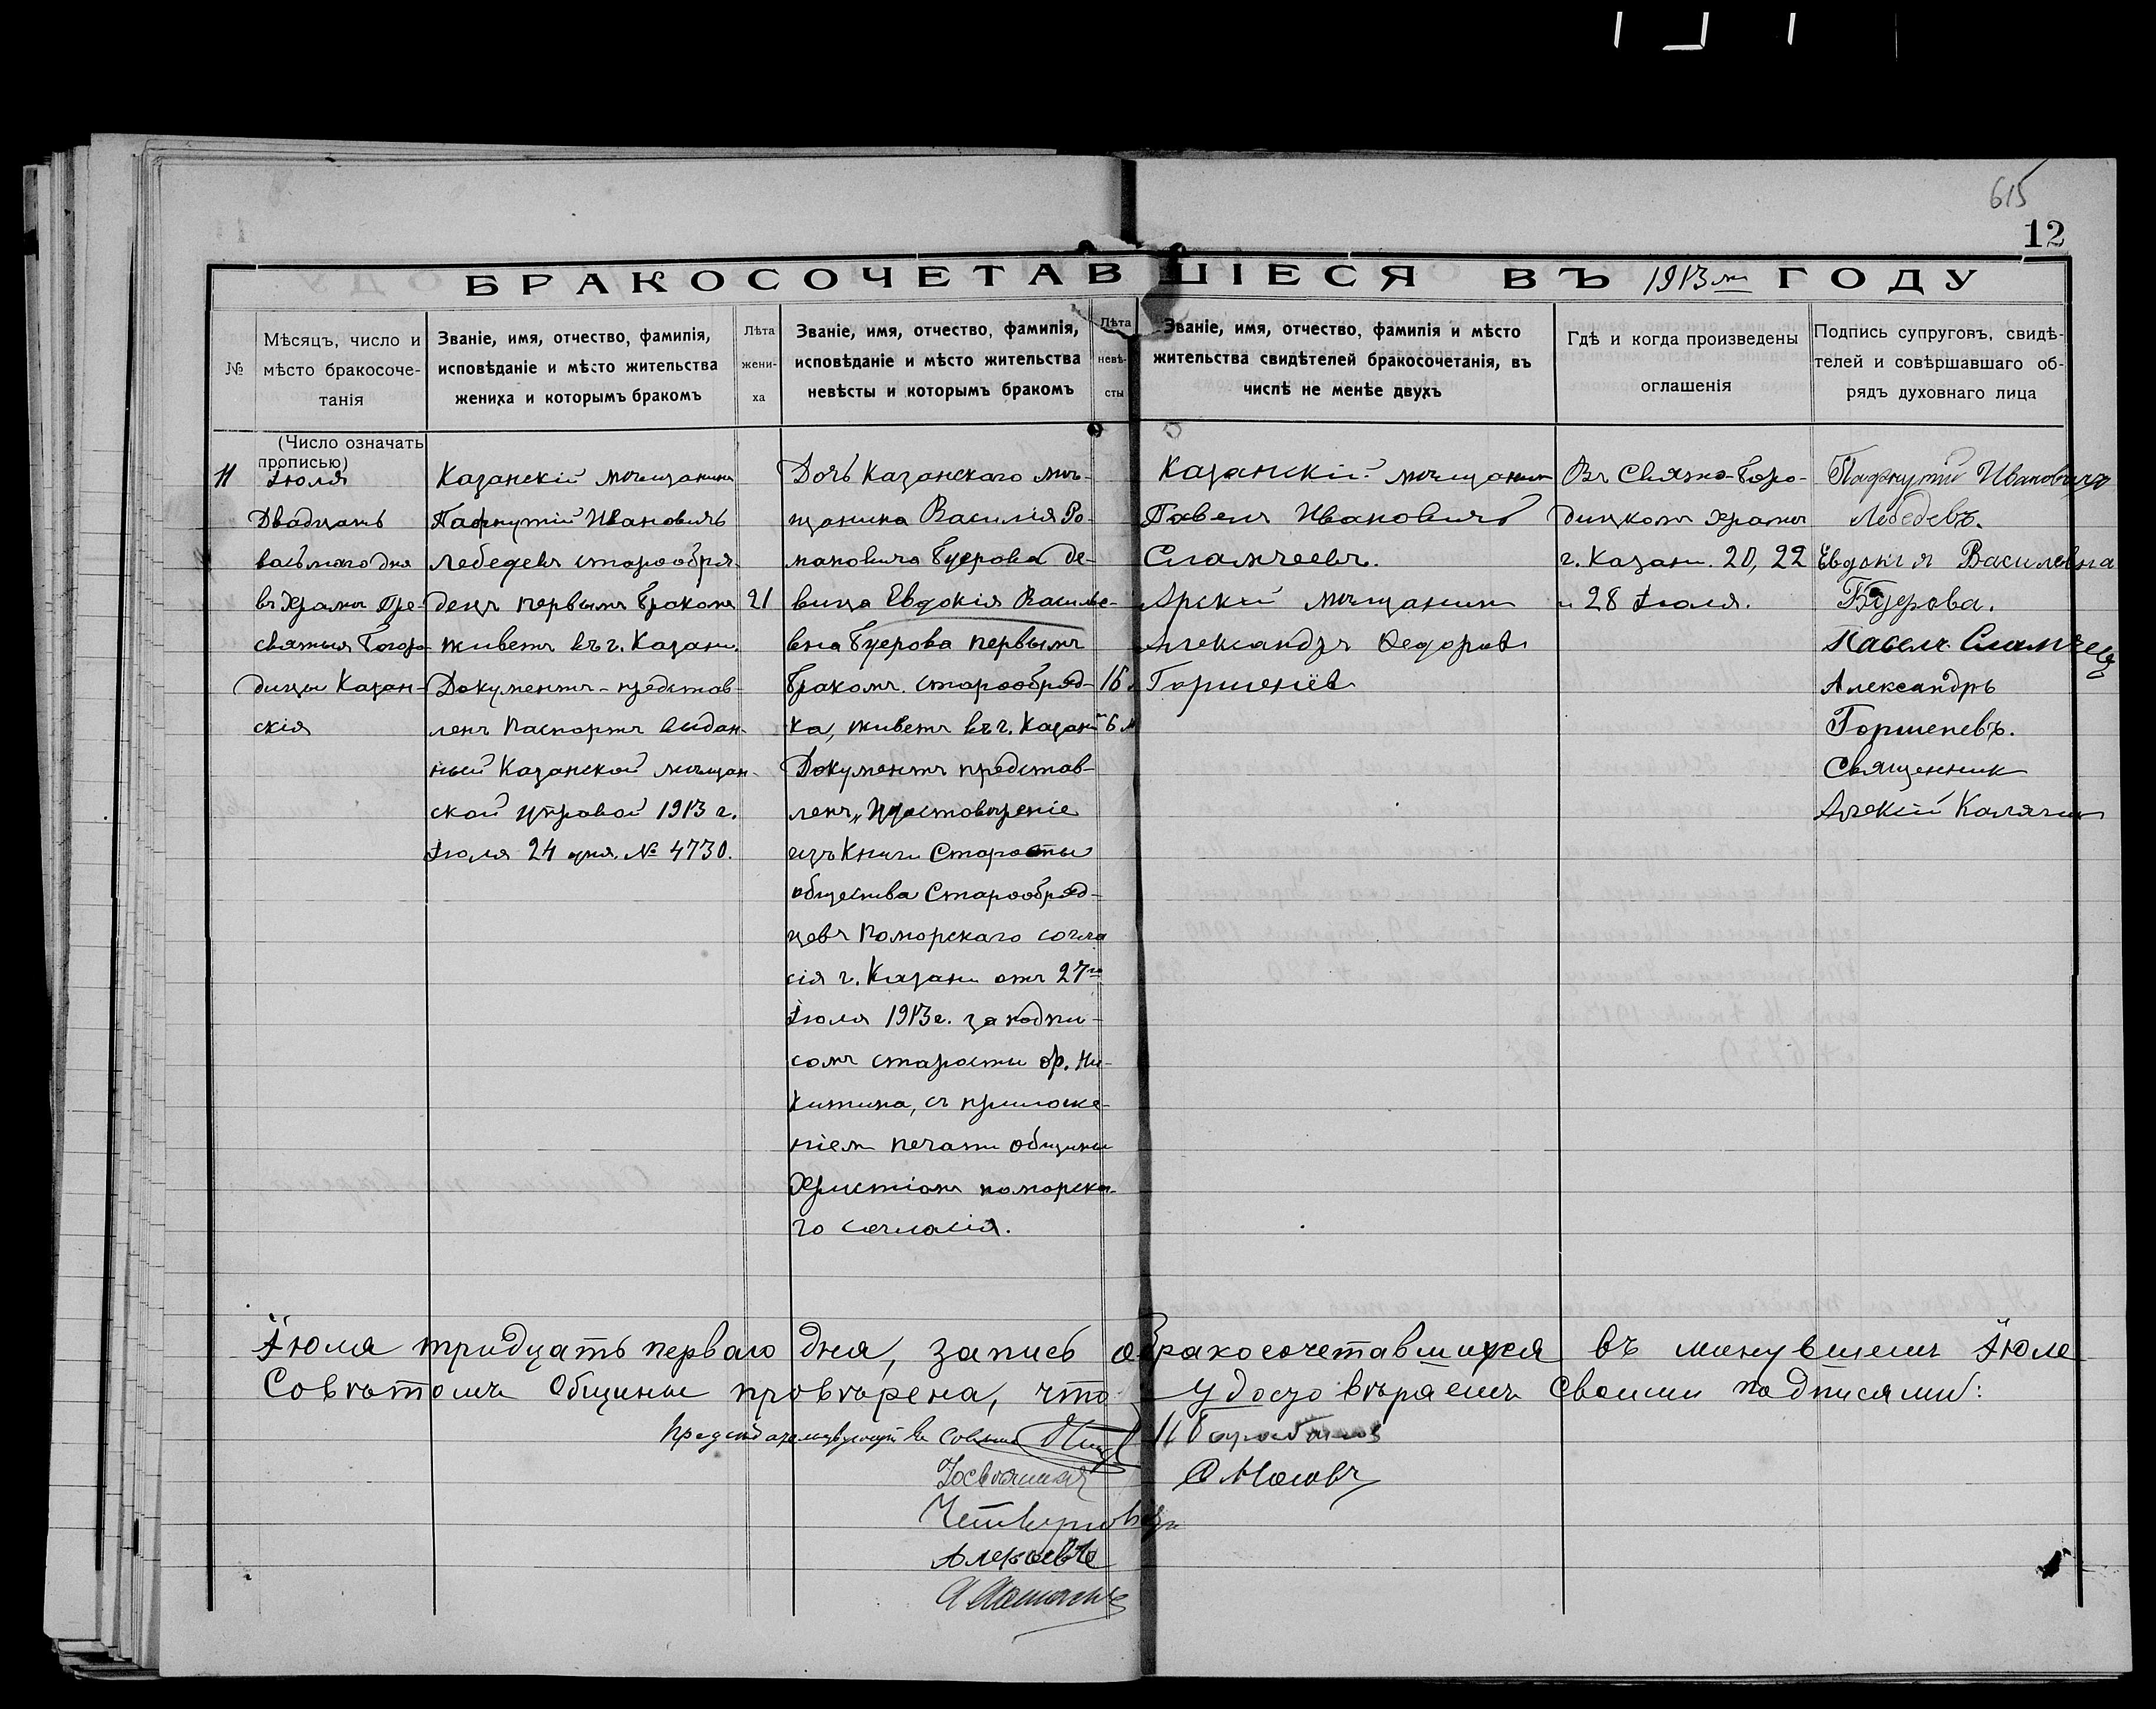 615
12
БРАКОСОЧЕТАВШІЕСЯ ВЪ 1913 м ГОДУ
№
Мѣсяцъ, число и
мѣсто бракосоче-
танія
Званіе, имя, отчество, фамилія,
исповѣданіе и мѣсто жительства
жениха и которымъ бракомъ
Лѣта
жени-
ха
Званіе, имя, отчество, фамилія,
исповѣданіе и мѣсто жительства
невѣсты и которымъ бракомъ
Лѣта
невѣ-
сты
Званіе, имя, отчество, фамилія и мѣсто
жительства свидѣтелей бракосочетанія, въ
числѣ не менѣе двухъ
Гдѣ и когда произведены
оглашенія
Подпись супруговъ, свидѣ-
телей и совѣршавшаго об-
рядъ духовнаго лица
(Число означать
прописью)
11
Іюля
Двадцать
восьмого дня
въ Храмѣ Пре-
святыя Богоро-
дицы Казан-
скія
Казанскій мѣщанинъ
Пафнутій Ивановичъ
Лебедевъ старообря-
децъ первымъ бракомъ
живетъ въ г. Казани.
Документъ-представ-
ленъ Паспортъ выдан-
ный Казанской мѣщан-
ской управой 1913 г.
Іюля 24 дня. № 4730.
21
Дочь Казанскаго мѣ-
щанина Василія Ро-
мановича Буерова де-
вица Евдокія Василье-
вна Буерова первымъ
бракомъ. старообряд-
ка, живетъ въ г. Казани
Документъ представ-
ленъ „Удостовѣреніе
изъ Книги Старосты
общества Старообряд-
цевъ Поморскаго согла
сія г. Казани отъ 27го
Іюля 1913 г. за подпи-
сомъ старосты Ѳр. Ни-
китина, съ приложе-
ніем печати общины
Христіанъ поморска-
го согласія.
16 л
6 м
Казанскій мѣщанин
Павелъ Ивановичъ
Сламчеевъ.
Арскій мѣщанинъ
Александръ Федоровъ
Горшенёв
Въ Свято-Бого-
дицкомъ Храмѣ
г. Казани. 20, 22
и 28 Іюля.
Пафнутій Ивановичъ
Лебедевъ.
Евдокія Василевна
Буерова.
Павелъ Сламчеев
Александръ
Горшеневъ.
Священник
Алексій Калягин
Іюля тридцать перваго дня, запись о бракосочетавшихся въ минувшемъ Іюле
Совѣтомъ Общины провѣрена, что удостовѣряемъ своими подписями:
Председательствующій въ Совѣте
Алексѣевъ